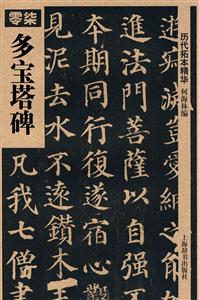 零柒
多宝塔碑
历代拓本精华
何海林编
进法門菩薩以自强不
本期同行復遂宿心
見泥去水不遠鑽木
凡我七僧聿
上海辞书出版社